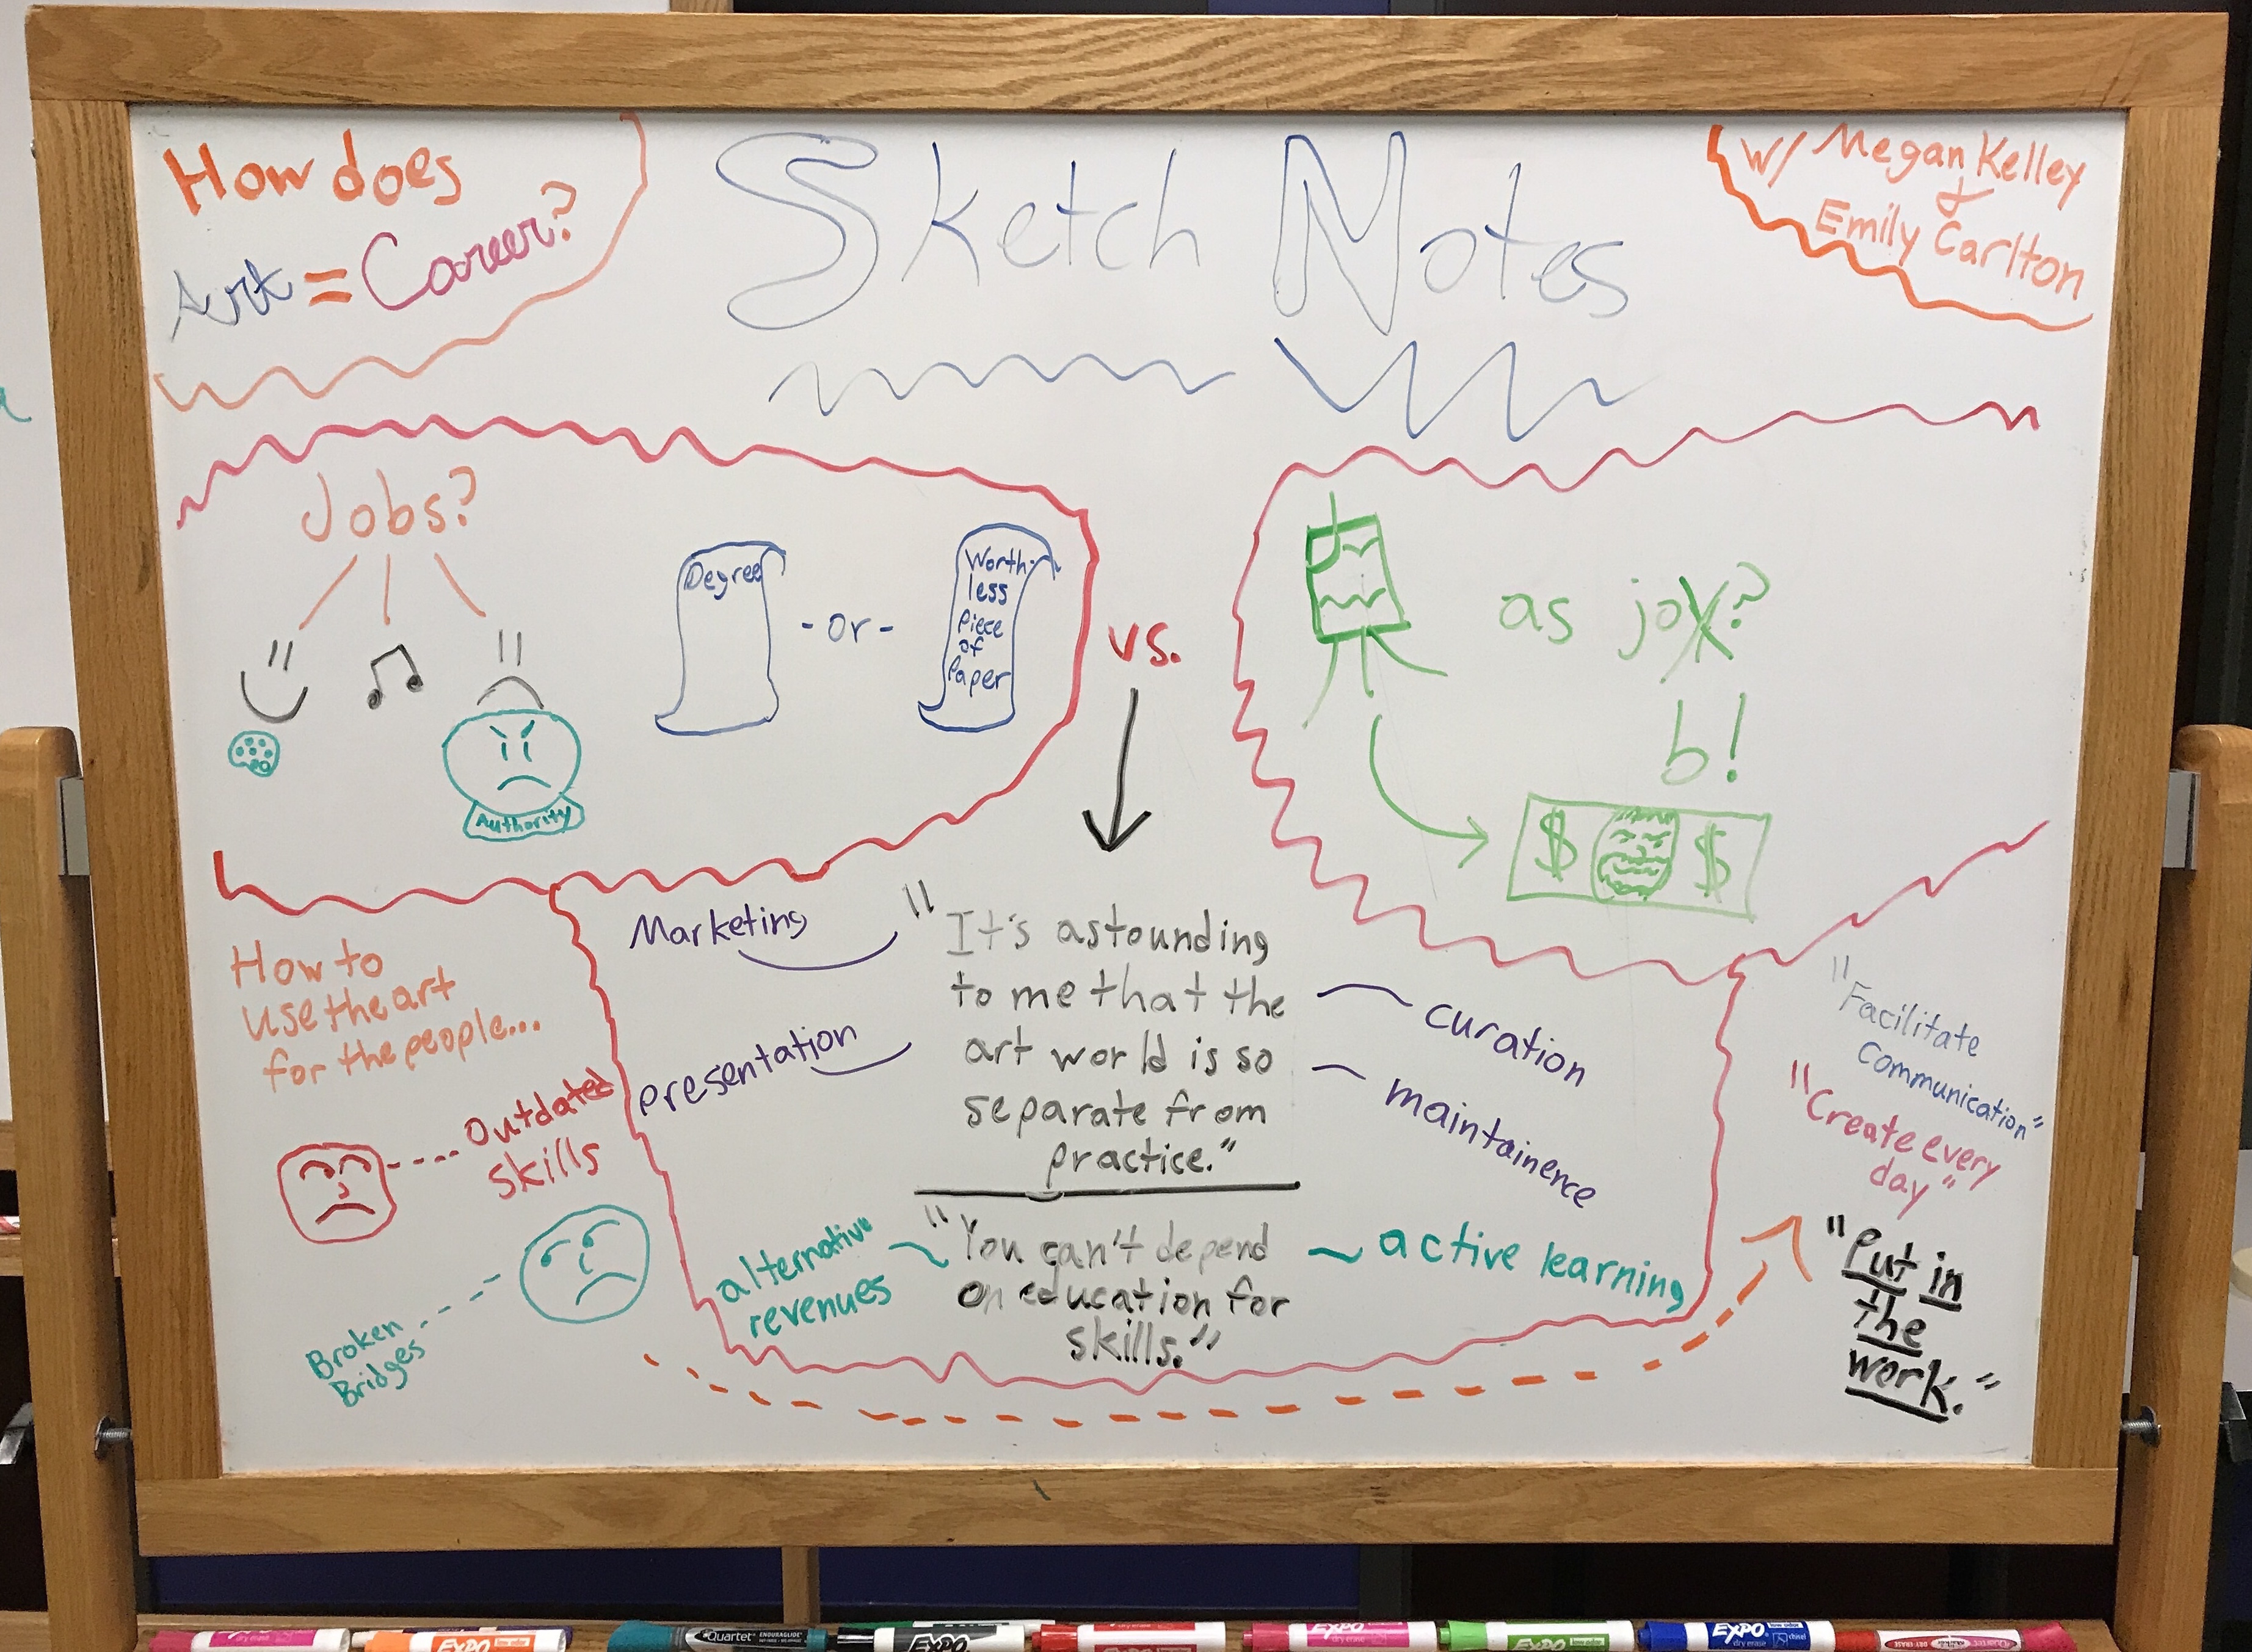 How does
Art = Career?
Sketch Notes
w/ Megan Kelley
&
Emily Carlton
Jobs?
Authority
Degree
- or -
Worth-
less
Piece
of
Paper
vs.
as jox?
b!
$ $
How to
use the art
for the people...
Outdated
skills
Broken
Bridges
Marketing
presentation
"It's astounding
to me that the
art world is so
separate from
practice."
curation
maintainence
alternative
revenues
"You can't depend
on education for
skills."
active learning
"Facilitate
Communication"
"Create every
day"
"Put in
the
work."
EXPO
Quartet ENDURAGLIDE
EXPO
EXPO
EXPO
EXPO
EXPO